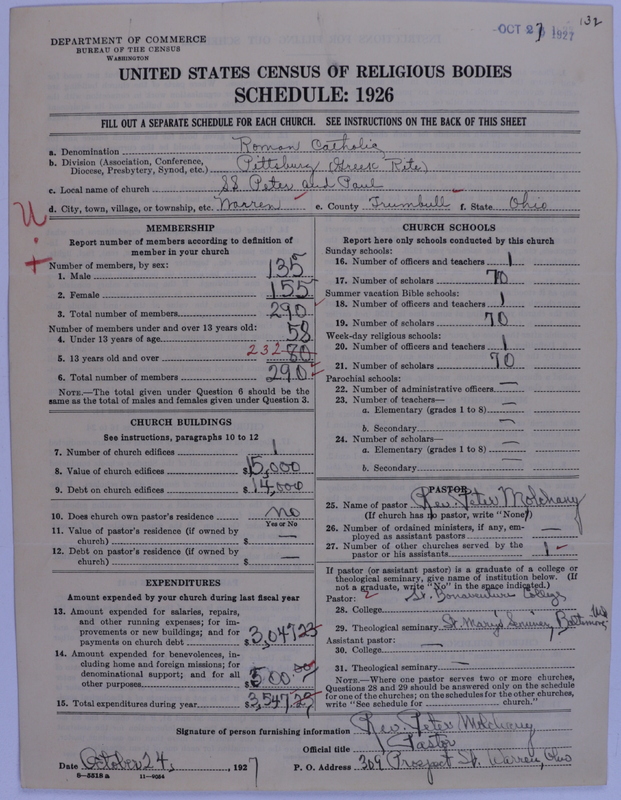 132
OCT 27 1927
DEPARTMENT OF COMMERCE
BUREAU OF THE CENSUS
WASHINGTON
UNITED STATES CENSUS OF RELIGIOUS BODIES
SCHEDULE: 1926
FILL OUT A SEPARATE SCHEDULE FOR EACH CHURCH. SEE INSTRUCTIONS ON THE BACK OF THIS SHEET
a. Denomination Roman Catholic
b. Division (Association, Conference, Diocese, Presbytery, Synod, etc.) Pittsburg (Greek Rite)
c. Local name of church SS. Peter and Paul
d. City, town, village, or township, etc. Warren e. County Trumbull f. State Ohio
MEMBERSHIP
Report number of members according to definition of
member in your church
Number of members, by sex:
1. Male 135
2. Female 155
3. Total number of members 290
Number of members under and over 13 years old:
4. Under 13 years of age 58
5. 13 years old and over 232 80
6. Total number of members 290
NOTE.—The total given under Question 6 should be
same as the total of males and females given under Question 3.
CHURCH BUILDINGS
See instructions, paragraphs 10 to 12
7. Number of church edifices 1
8. Value of church edifices $15,000
9. Debt on church edifices $14,000
10. Does church own pastor's residence no
Yes or No
11. Value of pastor's residence (if owned by
church) $ —
12. Debt on pastor's residence (if owned by
church) $ —
EXPENDITURES
Amount expended by your church during last fiscal year
13. Amount expended for salaries, repairs,
and other running expenses; for im-
provements or new buildings; and for
payments on church debt $3,047 23
14. Amount expended for benevolences, in-
cluding home and foreign missions; for
denominational support; and for all
other purposes $500 00
15. Total expenditures during year $3,547 23
CHURCH SCHOOLS
Report here only schools conducted by this church
Sunday schools:
16. Number of officers and teachers 1
17. Number of scholars 70
Summer vacation Bible schools:
18. Number of officers and teachers 1
19. Number of scholars 70
Week-day religious schools:
20. Number of officers and teachers 1
21. Number of scholars 70
Parochial schools:
22. Number of administrative officers —
23. Number of teachers—
a. Elementary (grades 1 to 8) —
b. Secondary —
24. Number of scholars—
a. Elementary (grades 1 to 8) —
b. Secondary —
PASTOR
25. Name of pastor Rev. Peter Molchany
(If church has no pastor, write "None")
26. Number of ordained ministers, if any, em-
ployed as assistant pastors —
27. Number of other churches served by the
pastor or his assistants 1
If pastor (or assistant pastor) is a graduate of a college or
theological seminary, give name of institution below. (If
not a graduate, write "No" in the space indicated.)
Pastor: St. Bonaventure College
28. College
29. Theological seminary St. Mary's Seminary, Baltimore
Assistant pastor:
30. College —
31. Theological seminary —
NOTE.—Where one pastor serves two or more churches,
Questions 28 and 29 should be answered only on the schedule
for one of the churches; on the schedules for the other churches,
write "See schedule for church."
Signature of person furnishing information Rev. Peter Molchany
Official title Pastor
Date October 24, 1927 P. O. Address 309 Prospect St. Warren, Ohio
8—5518 a 11—9064